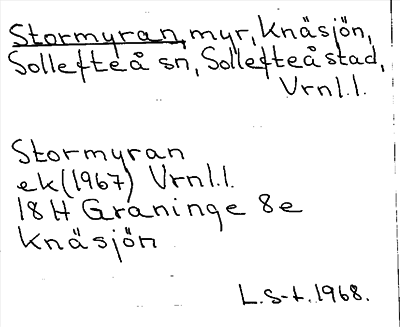 Stormyran, myr, Knäsjön,
Sollefteå sn, Sollefteå stad,
Vrnl.l.
Stormyran
ek (1967) Vrnl.l.
18 H Graninge 8e
Knäsjön
L.S-t. 1968.